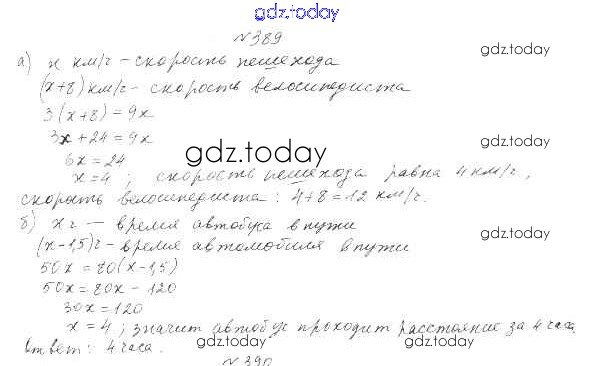 gdz.today
№389
gdz.today
а) x км/ч – скорость пешехода
(x+8) км/ч – скорость велосипедиста
3(x+8) = 9x
3x + 24 = 9x
gdz.today
6x = 24
gdz.today
x = 4 ; скорость пешехода равна 4 км/ч,
скорость велосипедиста: 4+8 = 12 км/ч.
б) x ч – время автобуса в пути
gdz.today
(x-1,5) ч – время автомобиля в пути
50x = 80(x-1,5)
50x = 80x - 120
30x = 120
x = 4 ; значит автобус проходит расстояние за 4 часа
Ответ: 4 часа.
gdz.today
gdz.today
№390